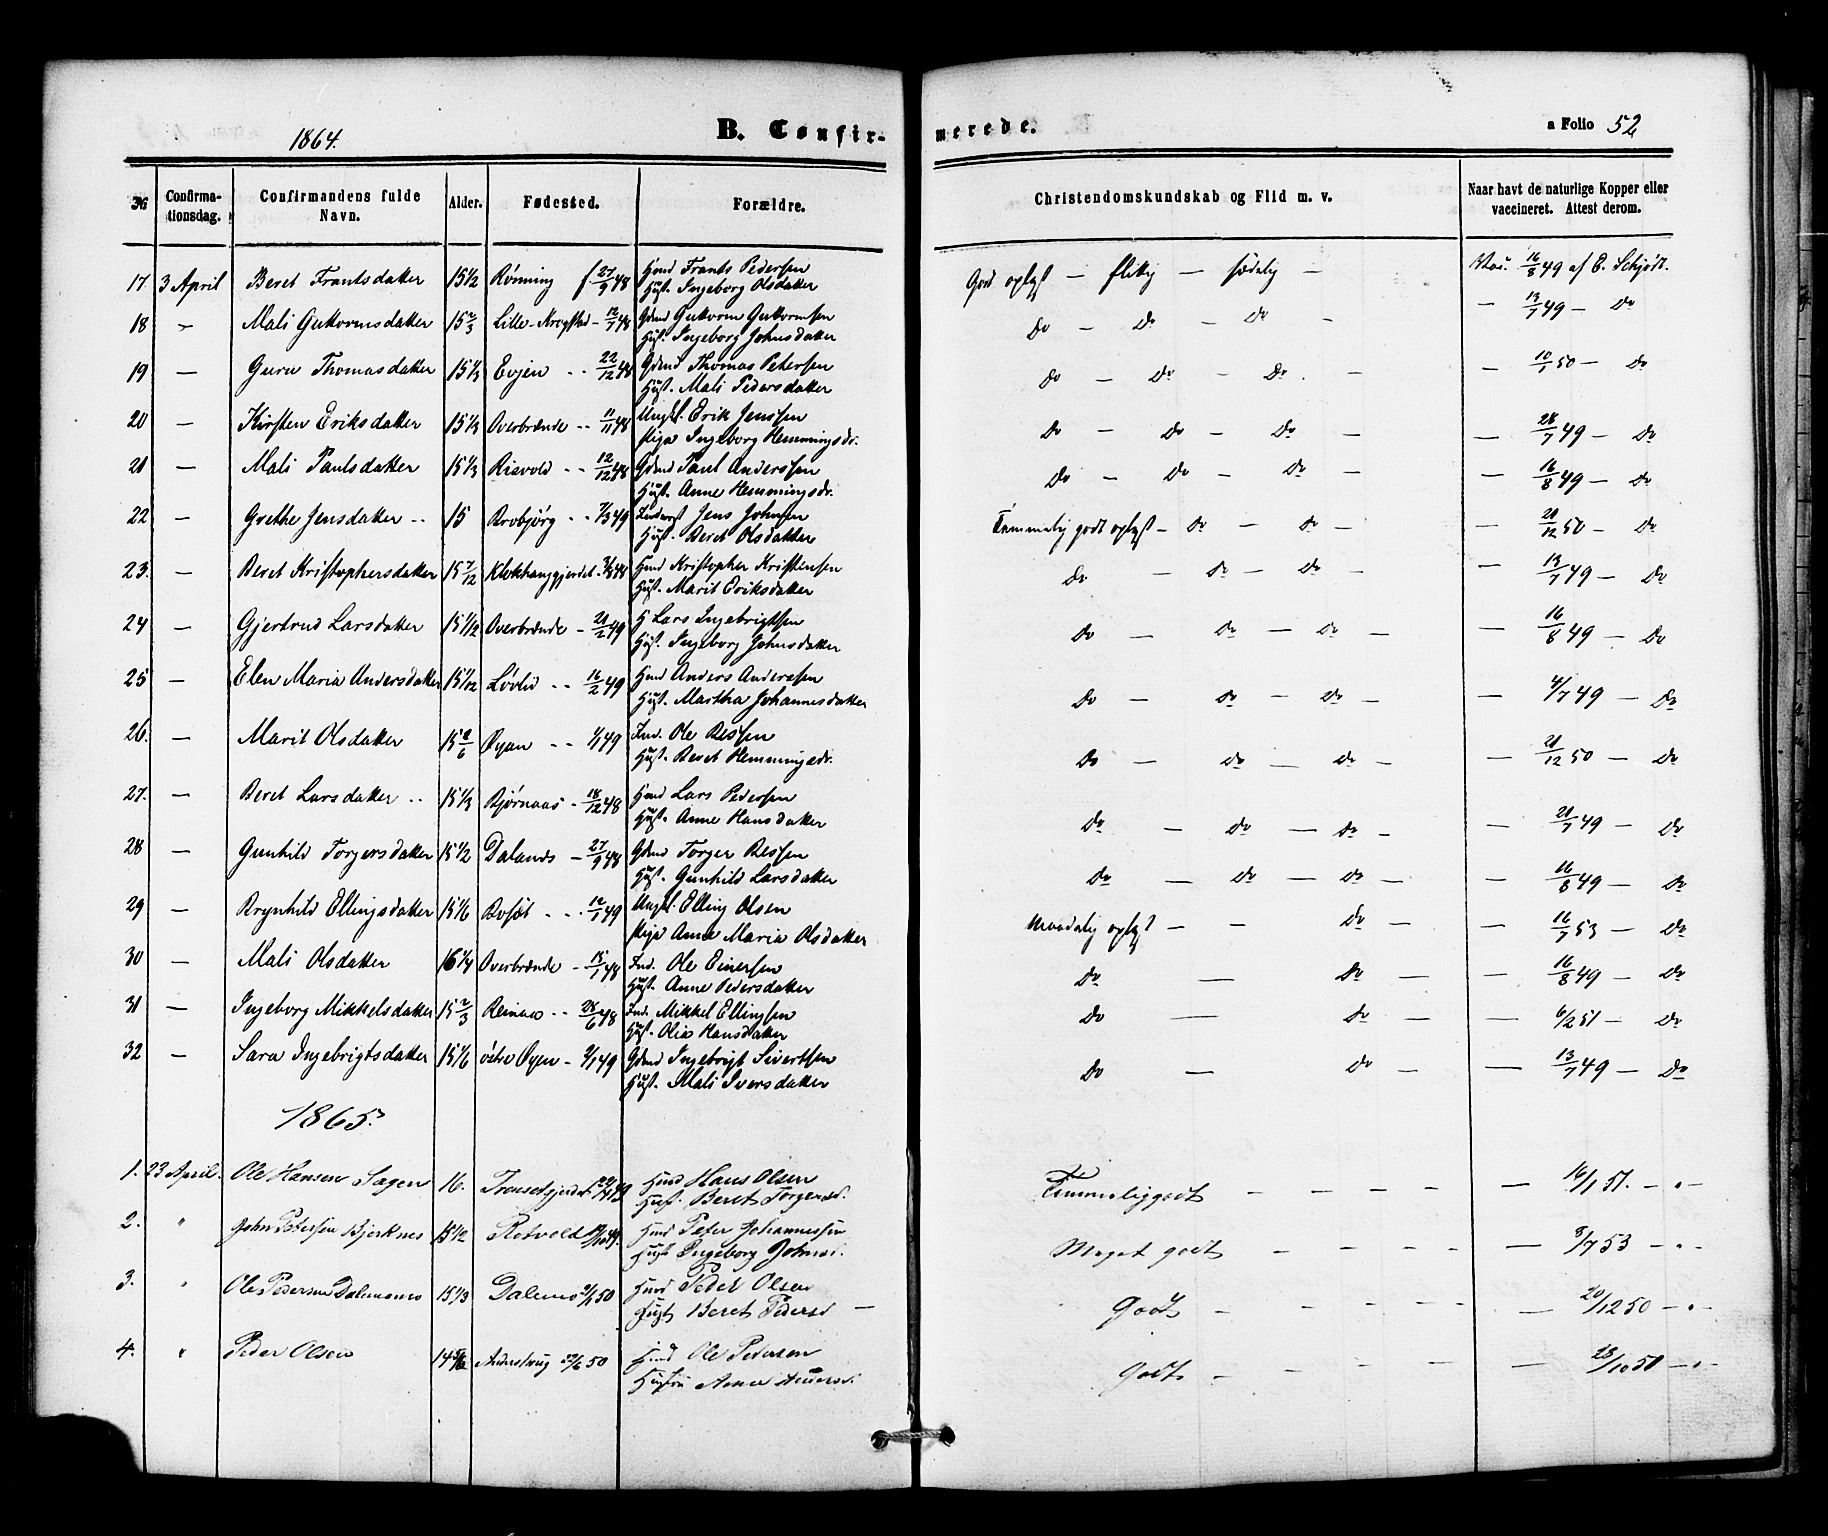 1864.
B. Confirmerede.
a Folio 52
№ Confirmationsdag. Confirmandens fulde Navn. Alder. Fødested. Forældre. Christendomskundskab og Flid m. v. Naar havt de naturlige Kopper eller vaccineret. Attest derom.
17. 3 April Beret Frantsdatter 15 1/2 Rønning f. 27/9 48 Hmd Frants Pedersen Hust. Ingeborg Olsdatter God oplyst — flittig — sædelig — Vac. 16/8 49 af E. Schjødt.
18 — Mali Guttormsdatter 15 2/3 Lille-Krogstad - 12/7 48 Gdmd Guttorm Guttormsen Hust. Ingeborg Johnsdatter Do — Do — Do — — 13/7 49 — Do
19 — Guru Thomasdatter 15 1/3 Evjen - - 22/12 48 Gdmd Thomas Petersen Hust. Mali Pedersdatter Do — Do — Do. — — 10/1 50 — Do
20 — Kirsten Eriksdatter 15 1/3 Overbrænde - - 11/11 48 Ungk. Erik Jenssen Piga Ingeborg Hemmingsdr. Do — Do — Do — — 28/7 49 — Do
21 — Mali Paulsdatter 15 1/3 Risvold - - 12/12 48 Gdmd Paul Anderssen Hust. Anne Hemmingsdr. Do — Do — Do — — 16/8 49 — Do
22 — Grethe Jensdatter - - 15 Brobjörg - - 7/3 49 Inderst Jens Johnsen Hust. Beret Olsdatter Temmelig godt oplyst — Do — Do — — 21/12 50 — Do
23. — Beret Kristophersdatter 15 7/12 Klokhauggjerdet - 48 Hmd Kristopher Kristensen Hust. Marit Eriksdatter Do — Do — Do — — 13/7 49 — Do
24 — Gjertrud Larsdatter 15 1/12 Overbrænde - 21/2 49 H Lars Ingebrigtsen Hust. Ingeborg Johnsdatter Do — Do — Do — — 16/8 49 — Do
25 — Elen Maria Andersdatter 15 1/12 Lövlid - - 16/2 49 Hmd Anders Anderssen Hust. Martha Johannesdatter Do — Do — Do — — 4/7 49 — Do
26. — Marit Olsdatter 15 2/6 Øyan - - 1/1 49 Ind. Ole Bessen Hust. Beret Hemmingsdr. Do — Do — Do — — 21/12 50 — Do
27. — Beret Larsdatter - - 15 1/3 Bjørnaas - 18/12 48 Hmd Lars Pedersen Hust. Anne Hansdatter Do — Do — Do — — 21/7 49 — Do
28 — Gunhild Torgersdatter 15 1/2 Dalands - 27/9 48 Gdmd Torger Bessen Hust. Gunhild Larsdatter Do — Do — Do — — 16/8 49 — Do
29 — Brynhild Ellingsdatter 15 1/6 - - - 12/1 49 Ungk. Elling Olsen Piga Anne Maria Olsdatter Maadelig oplyst — — Do — — 16/7 53 — Do
30 — Mali Olsdatter 16 1/4 Overbrænde - 15/1 48 Ind. Ole Einersen Hust. Anne Pedersdatter Do — Do — — 16/8 49 — Do
31 — Ingeborg Mikkelsdatter 15 2/3 Reinaas - - 28/6 48 Ind. Mikkel Ellingsen Hust. Olia Hansdatter Do — Do — — 6/2 51 — Do
32 — Sara Ingebrigtsdatter 15 1/6 östre Øyen - 2/1 49 Gdmd Ingebrigt Sivertsen Hust. Mali Iversdatter Do — Do — — 13/7 49 — Do
1865.
1. 23 April. Ole Hansen Sagen 16. 49 Hmd Hans Olsen Hust. Beret Torgersd. Temmelig godt — — — — 16/1 51. — " —
2. " John Petersen Bjerknes 15 1/2 Rotvold Hmd Peter Johannessen Hust Ingeborg Johnsd. Meget godt — — — — — 8/7 53 — " —
3. " Ole Pedersen Dalemoen 15 1/3 Dalemo 2/1 50 Hmd Peder Olsen Hust Beret Pedersd — Godt — — — — — 20/12 50 — " —
4. " Peder Olsen 50 Hmd Ole Petersen Hustru Anne Andersd. Godt — — — — — 50 — " —